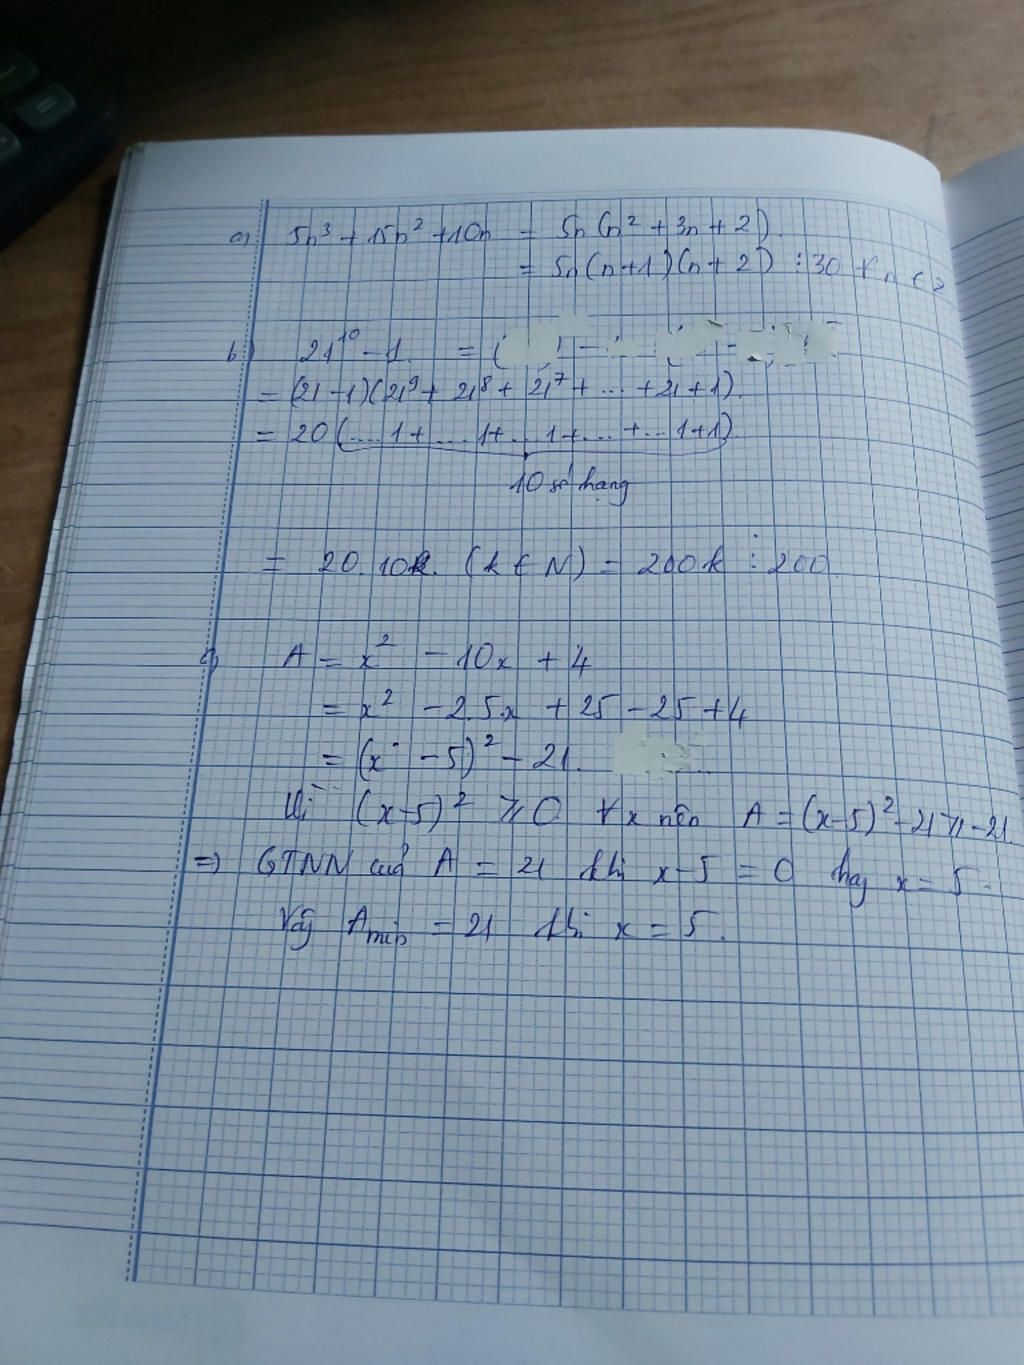 a) 5n³ + 15n² + 10n = 5n (n² + 3n + 2).
= 5n (n+1) (n+2) ⋮ 30 ∀ n ∈ Z
b) 21¹⁰ - 1. = (
= (21 - 1)(21⁹ + 21⁸ + 21⁷ + ... + 21 + 1).
= 20 (...1 + ...1 + ...1 + ... + ...1 + 1)
10 số hạng
= 20. 10k. (k ∈ N) = 200k ⋮ 200
c) A = x² - 10x + 4
= x² - 2.5.x + 25 - 25 + 4
= (x - 5)² - 21.
Vì (x-5)² ⩾ 0 ∀ x nên A = (x-5)² - 21 ⩾ -21
=) GTNN của A = 21 khi x - 5 = 0 hay x = 5.
Vậy Amin = 21 khi x = 5.